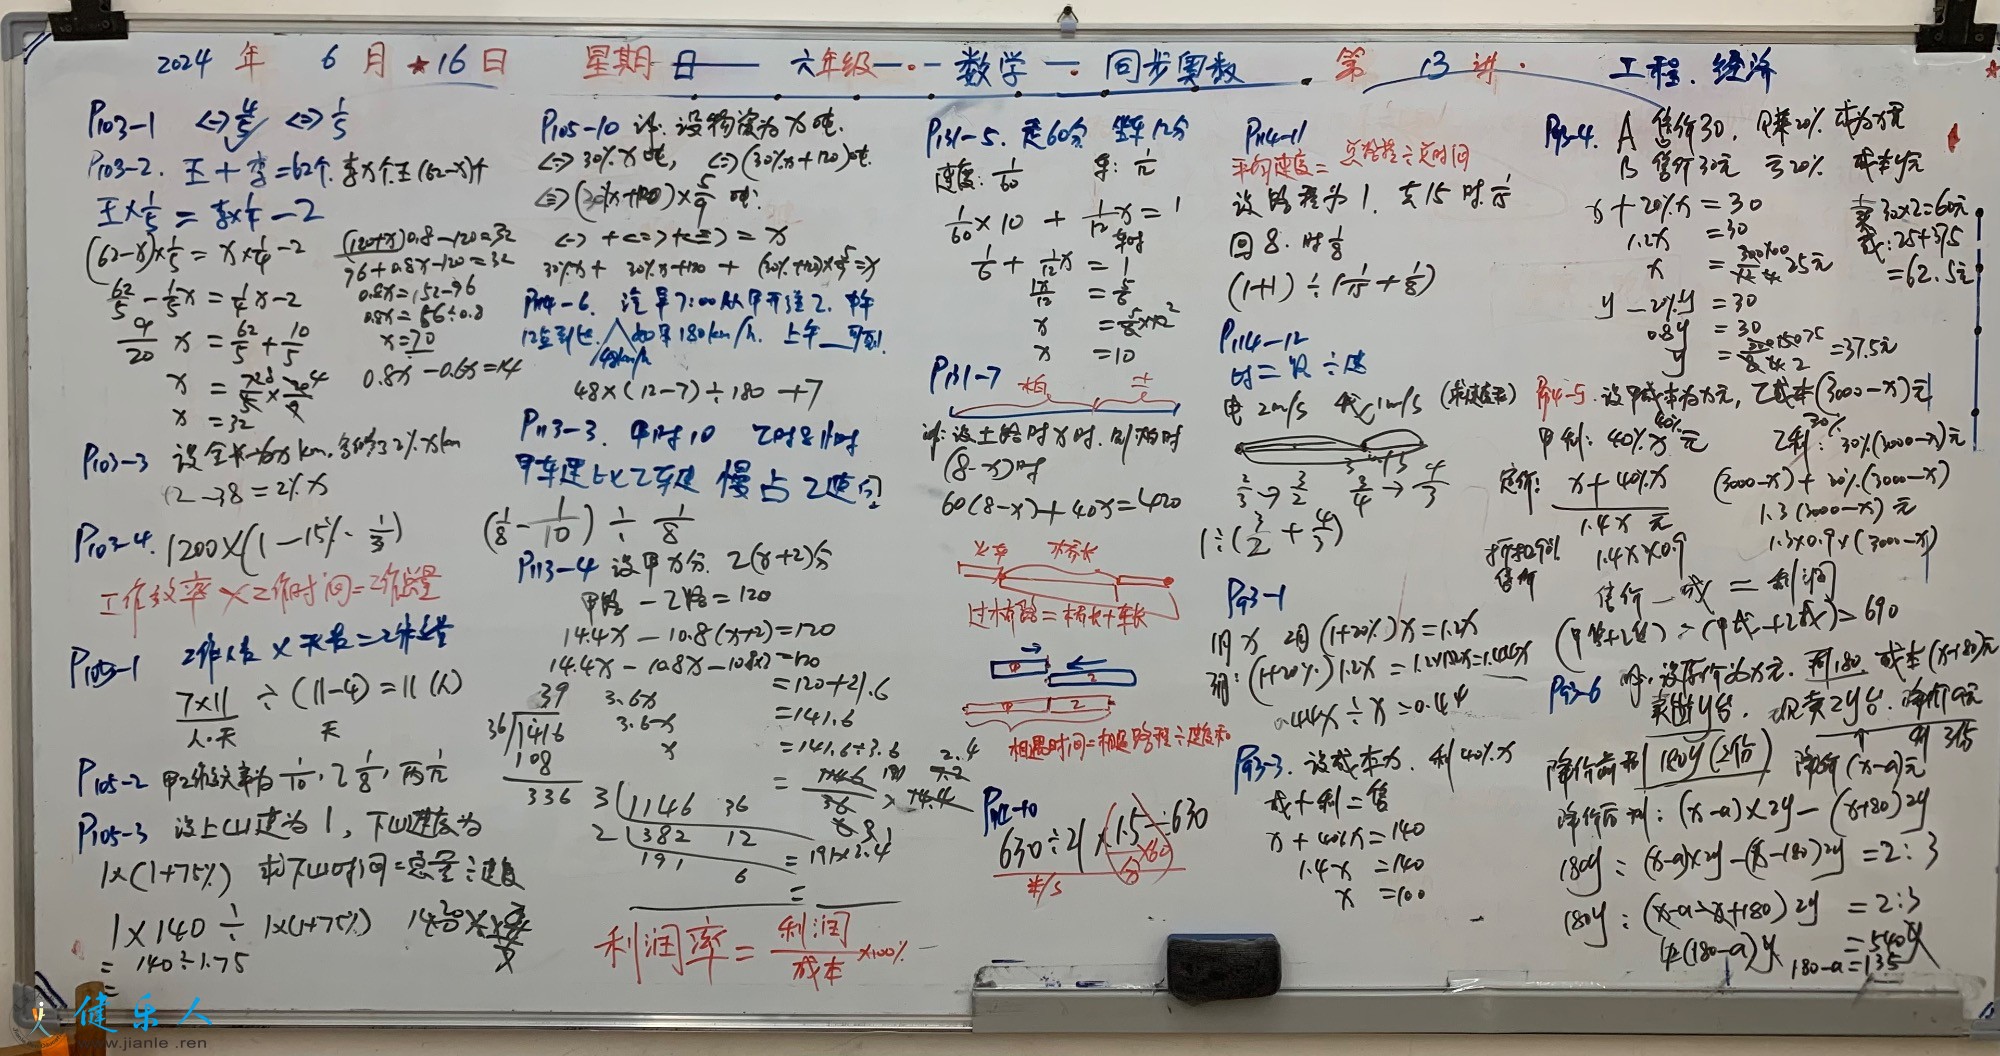 2024 年 6 月 16 日 星期 日 六年级 数学 同步奥数 第 13 讲 工程. 经济
P103-1 <=> 4/5 <=> 1/5
P103-2. 王 + 李 = 62个. 李x个 王(62-x)个
王×1/5 = 李×1/4 - 2
(62-x)×1/5 = x×1/4 - 2
62/5 - 1/5x = 1/4x - 2
9/20 x = 62/5 + 10/5
x = 32
(120+x)0.8-120=32
96+0.8x-120=32
0.8x=152-96
0.8x=56÷0.8
x=70
0.8x-0.6x=14
P103-3 设全长为x km.
12-38=2%x
P103-4. 1200×(1-15%-1/3)
工作效率×工作时间=工作总量
P105-1 工作人数×天数=工作总量
7×11 ÷(11-4)=11(人)
人·天 天
P105-2 甲工作效率为1/10, 乙1/8,
P105-3 设上山速为1, 下山速度为
1×(1+75%) 求下山时间=总量÷速度
1×140÷ 1×(1+75%)
= 140÷1.75
=
P105-10 设货物为x吨.
<-> 30%x吨, <=>(30%x+120)吨.
<-> + <=> + <≡> = x
30%x + 30%x+120 + (30%+120)×5/9=x
P114-6. 汽车早7:00从甲开往乙. 中午
12点到达. 如果180km/h. 上午__可到.
48km/h
48×(12-7)÷180+7
P113-3. 甲时10 乙时8小时
甲车速比乙车速 慢占乙速的
(1/8-1/10)÷1/8
P113-4 设甲x分. 乙(x+2)分
甲路-乙路=120
14.4x-10.8(x+2)=120
14.4x-10.8x-10.8×2=120
3.6x =120+21.6
3.6x =141.6
x =141.6÷3.6
39
36 1416
108
336
3 1146 36
2 382 12
191 6
= 191×2.4
=
利润率 = 利润/成本 ×100%
P131-5. 走60分 坐车12分
速度: 1/60 车: 1/12
1/60×10 + 1/12x = 1
车时
1/6 + 1/12x = 1
1x/12 = 5/6
x = 5/6×12
x = 10
P131-7
设土路时x时. 则柏时
(8-x)时
60(8-x)+40x=420
火车 桥长
过桥路=桥长+车长
相遇时间=相遇路程÷速度和
P112-10
630÷21×1.5-630
米/s 分 ×60
P114-11
平均速度=总路程÷总时间
设路程为1. 去15时 1/15
回8.时 1/8
(1+1)÷(1/15+1/8)
P114-12
时=路÷速
2m/s 1m/s
2/3→3/2 3/4→4/3
1÷(3/2+4/3)
P93-1
1月x 2月(1+20%)x=1.2x
3月:(1+20%)1.2x
0.44x÷x=0.44
P93-3. 设成本x. 利40%x
成+利=售
x+40%x=140
1.4x =140
x =100
P93-4. A 售价30. 赚20% 成本为x元
B 售价30元 亏20% 成本y元
x+20%x=30
1.2x =30
x = 25元
y-20%y=30
0.8y =30
y = =37.5元
卖30×2=60元
成:25+37.5
=62.5元
P94-5. 设甲成本为x元, 乙成本(3000-x)元
甲利: 40%x元 乙利: 30%(3000-x)元
定价: x+40%x (3000-x)+30%(3000-x)
1.4x元 1.3(3000-x)元
1.4x×0.9 1.3×0.9×(3000-x)
售价
售价-成=利润
(甲售+乙售)-(甲成+乙成)=690
P93-6 设原价为x元. 利180. 成本(x-180)元
卖出y台. 现卖2y台. 降价a元
降价前利 180y(2份) 降价(x-a)元
降价后利: (x-a)×2y-(x-180)2y
180y:(x-a)×2y-(x-180)2y=2:3
180y:(x-a-x+180)2y =2:3
4(180-a)y =540y
180-a=135
健乐人
www.jianle.ren